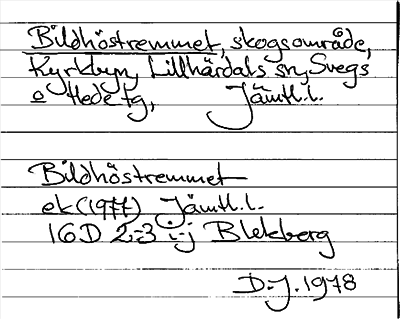 Bildhöstremmet, skogsområde,
Kyrkbyn, Lillhärdals sn, Svegs
o Hede tg, Jämtl.l.
Bildhöstremmet
ek (1977) Jämtl.l.
16D 2-3 i-j Blekberg
D.J. 1978